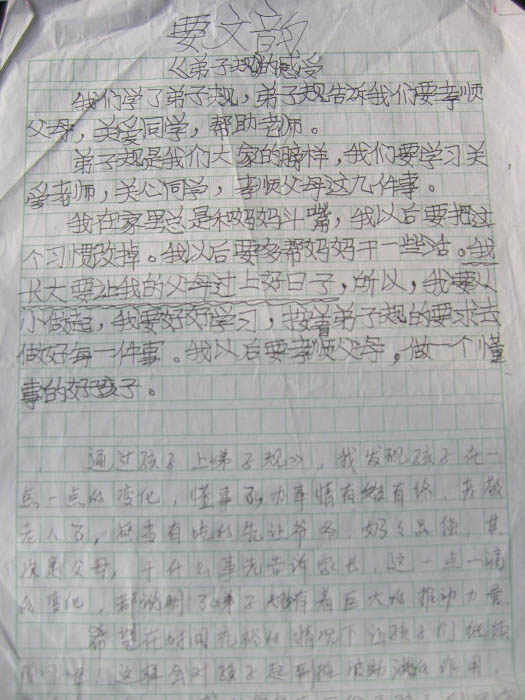 要文韵
《弟子规》的感受
我们学了弟子规，弟子规告诉我们要孝顺
父母，关爱同学，帮助老师。
弟子规是我们大家的榜样，我们要学习关
爱老师，关心同学，孝顺父母这几件事。
我在家里总是和妈妈斗嘴，我以后要把这
个习惯改掉。我以后要多帮妈妈干一些活。我
长大要让我的父母过上好日子，所以，我要从
小做起，我要好好学习，按着弟子规的要求去
做好每一件事。我以后要孝顺父母，做一个懂
事的好孩子。
通过孩子上《弟子规》，我发现孩子在一
点一点的变化，懂事了，办事情有始有终，孝敬
老人了，每当有吃的先让爷爷、奶奶品偿，其
次是父母，干什么事先告诉家长，这一点一滴
的变化，都说明了《弟子规》有着巨大的推动力量
希望在时间充裕的情况下让孩子们继续
这样会对孩子起到推波助澜的作用，